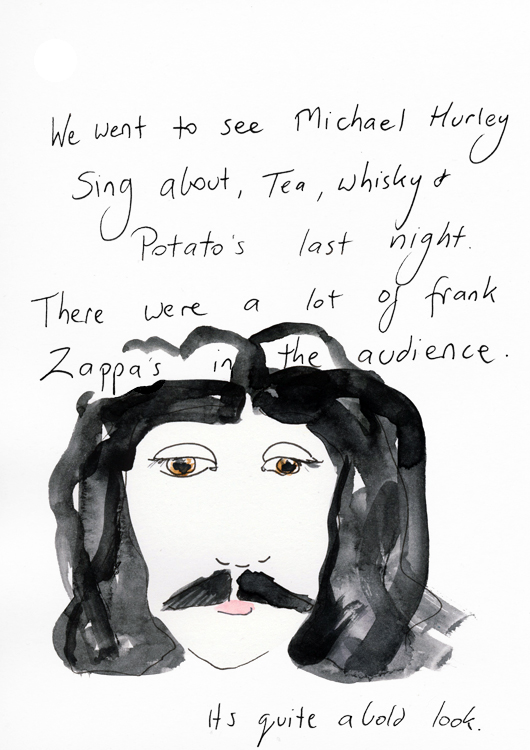 We went to see Michael Hurley
Sing about, Tea, whisky &
Potato's last night.
There were a lot of frank
Zappa's in the audience.
Its quite a bold look.